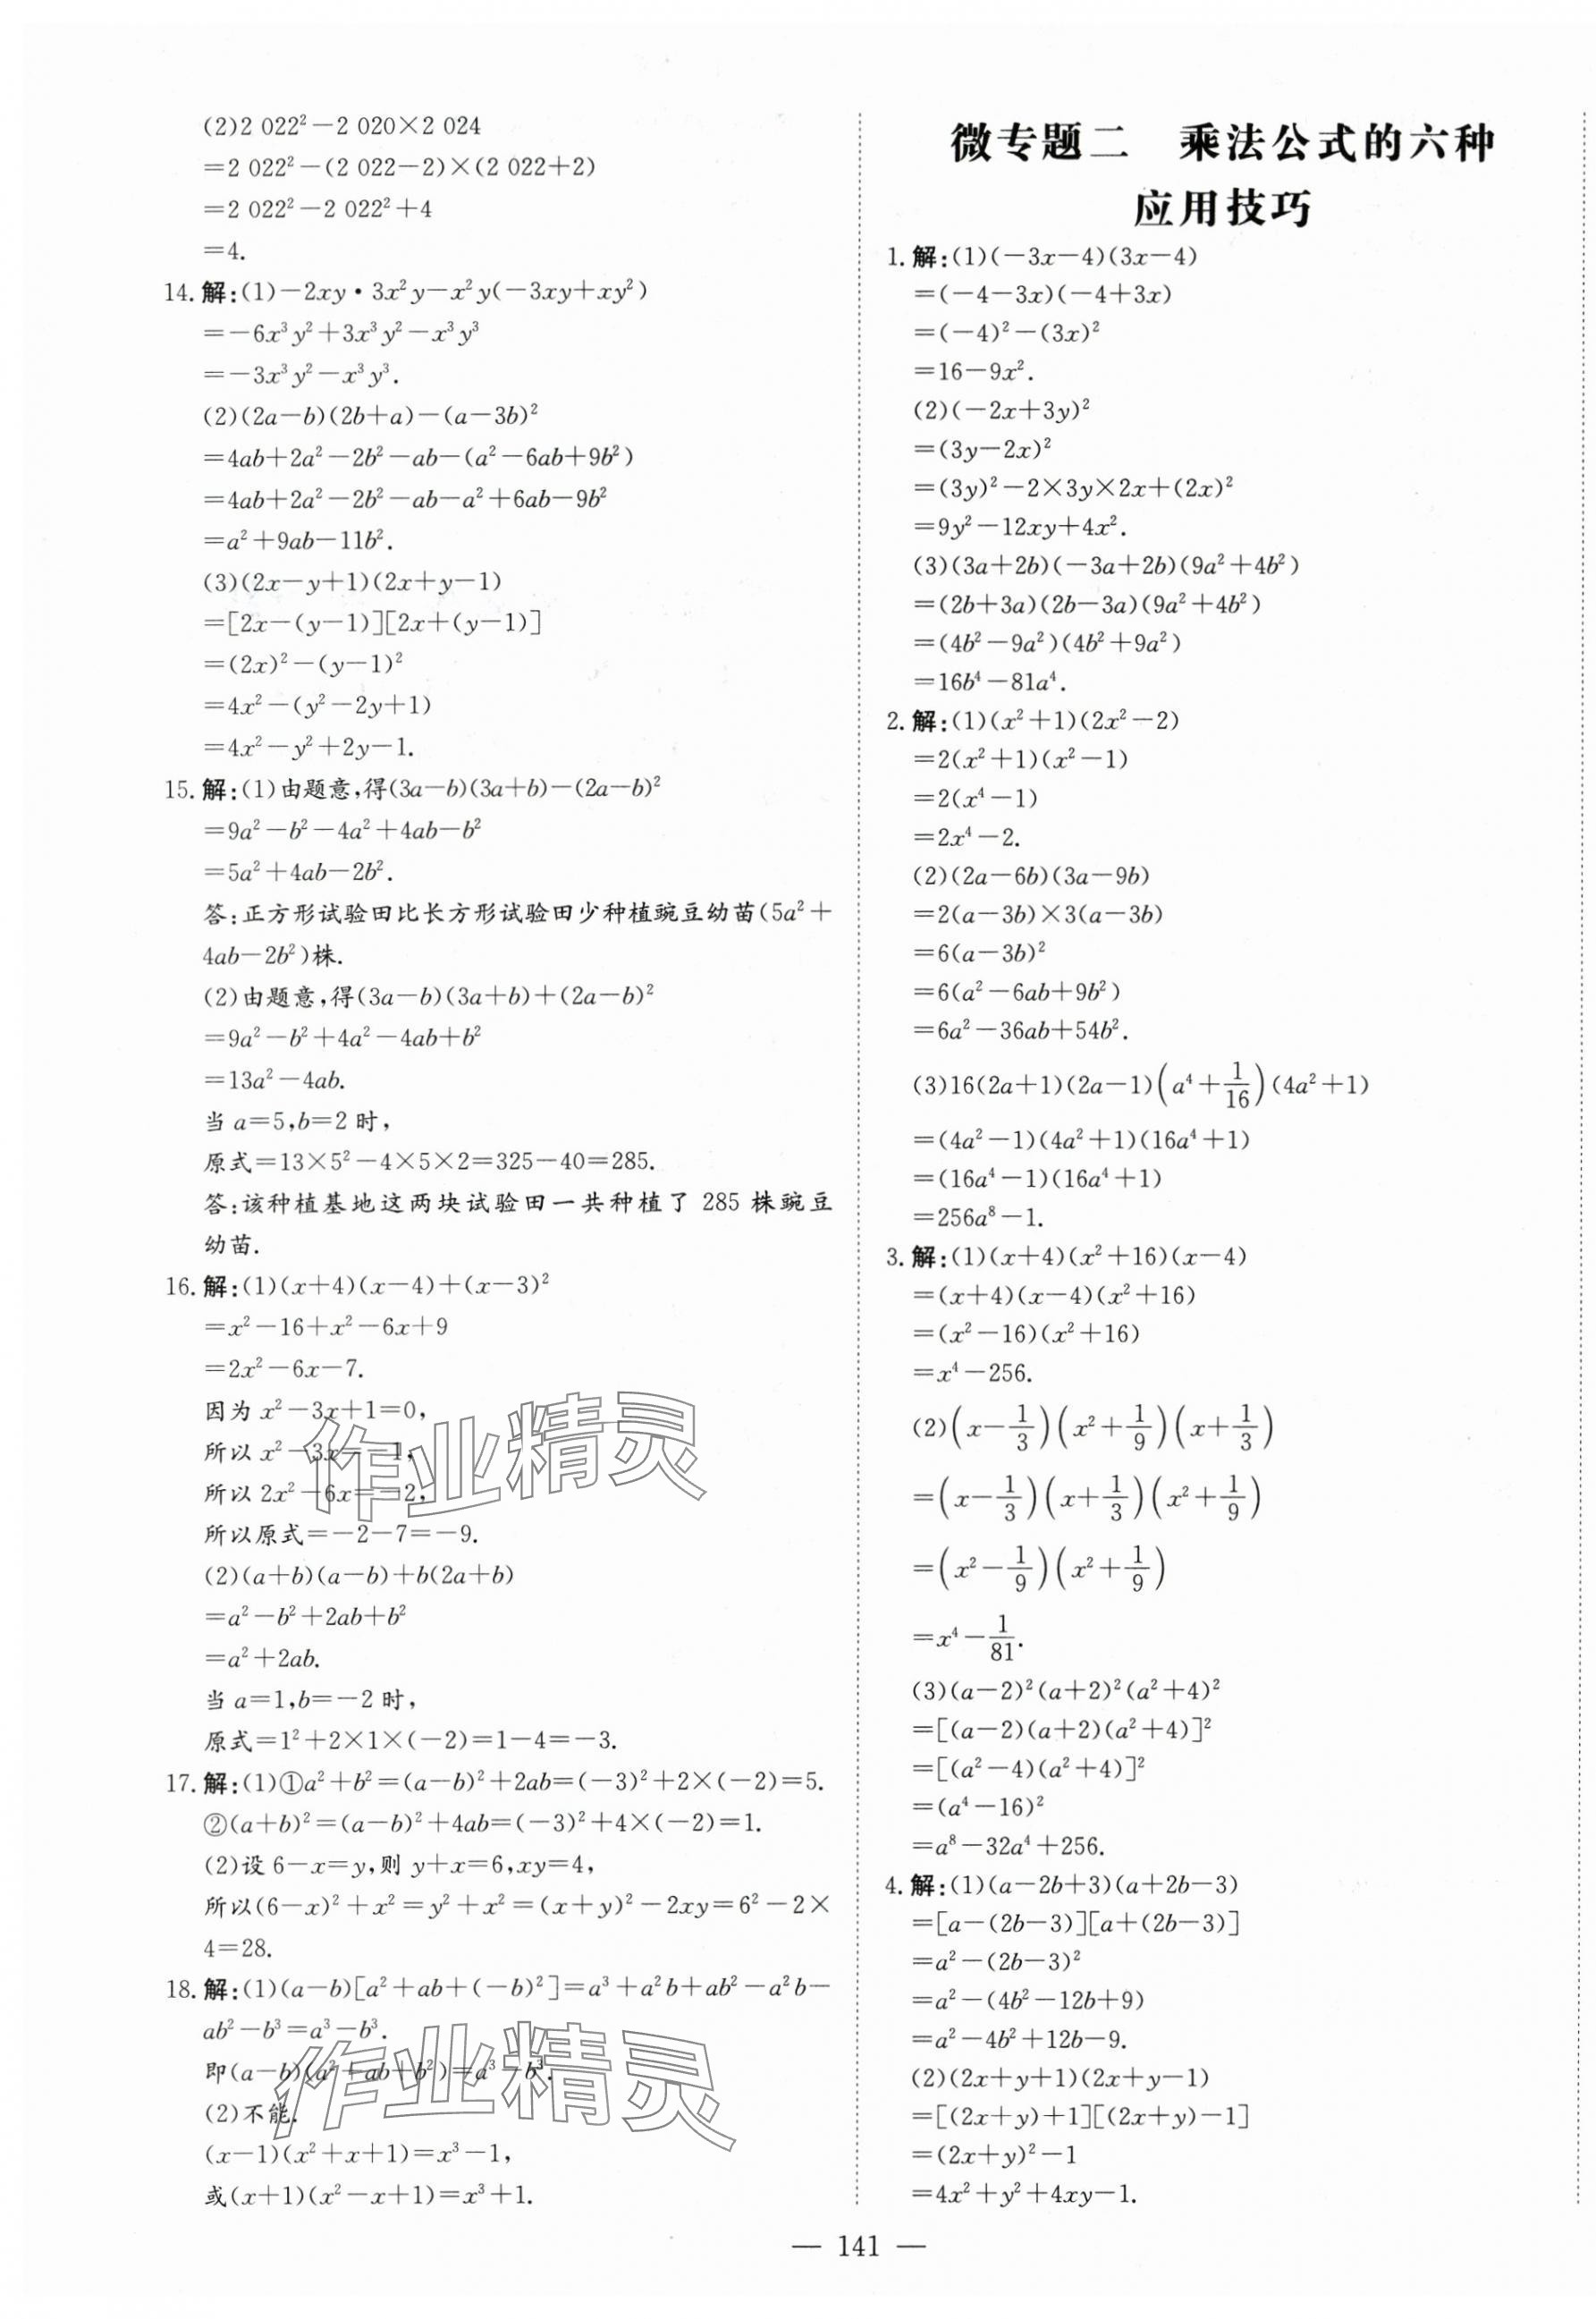 (2)2 022²－2 020×2 024
＝2 022²－(2 022－2)×(2 022＋2)
＝2 022²－2 022²＋4
＝4.
14. 解:(1)－2xy·3x²y－x²y(－3xy＋xy²)
＝－6x³y²＋3x³y²－x³y³
＝－3x³y²－x³y³.
(2)(2a－b)(2b＋a)－(a－3b)²
＝4ab＋2a²－2b²－ab－(a²－6ab＋9b²)
＝4ab＋2a²－2b²－ab－a²＋6ab－9b²
＝a²＋9ab－11b².
(3)(2x－y＋1)(2x＋y－1)
＝[2x－(y－1)][2x＋(y－1)]
＝(2x)²－(y－1)²
＝4x²－(y²－2y＋1)
＝4x²－y²＋2y－1.
15. 解:(1)由题意,得(3a－b)(3a＋b)－(2a－b)²
＝9a²－b²－4a²＋4ab－b²
＝5a²＋4ab－2b².
答:正方形试验田比长方形试验田少种植豌豆幼苗(5a²＋
4ab－2b²)株.
(2)由题意,得(3a－b)(3a＋b)＋(2a－b)²
＝9a²－b²＋4a²－4ab＋b²
＝13a²－4ab.
当 a＝5,b＝2 时,
原式＝13×5²－4×5×2＝325－40＝285.
答:该种植基地这两块试验田一共种植了 285 株豌豆
幼苗.
16. 解:(1)(x＋4)(x－4)＋(x－3)²
＝x²－16＋x²－6x＋9
＝2x²－6x－7.
因为 x²－3x＋1＝0,
所以 x²－3x＝－1,
所以 2x²－6x＝－2,
所以原式＝－2－7＝－9.
(2)(a＋b)(a－b)＋b(2a＋b)
＝a²－b²＋2ab＋b²
＝a²＋2ab.
当 a＝1,b＝－2 时,
原式＝1²＋2×1×(－2)＝1－4＝－3.
17. 解:(1)①a²＋b²＝(a－b)²＋2ab＝(－3)²＋2×(－2)＝5.
②(a＋b)²＝(a－b)²＋4ab＝(－3)²＋4×(－2)＝1.
(2)设 6－x＝y,则 y＋x＝6,xy＝4,
所以(6－x)²＋x²＝y²＋x²＝(x＋y)²－2xy＝6²－2×
4＝28.
18. 解:(1)(a－b)[a²＋ab＋(－b)²]＝a³＋a²b＋ab²－a²b－
ab²－b³＝a³－b³.
即(a－b)(a²＋ab＋b²)＝a³－b³.
(2)不能.
(x－1)(x²＋x＋1)＝x³－1,
或(x＋1)(x²－x＋1)＝x³＋1.
微专题二 乘法公式的六种
应用技巧
1. 解:(1)(－3x－4)(3x－4)
＝(－4－3x)(－4＋3x)
＝(－4)²－(3x)²
＝16－9x².
(2)(－2x＋3y)²
＝(3y－2x)²
＝(3y)²－2×3y×2x＋(2x)²
＝9y²－12xy＋4x².
(3)(3a＋2b)(－3a＋2b)(9a²＋4b²)
＝(2b＋3a)(2b－3a)(9a²＋4b²)
＝(4b²－9a²)(4b²＋9a²)
＝16b⁴－81a⁴.
2. 解:(1)(x²＋1)(2x²－2)
＝2(x²＋1)(x²－1)
＝2(x⁴－1)
＝2x⁴－2.
(2)(2a－6b)(3a－9b)
＝2(a－3b)×3(a－3b)
＝6(a－3b)²
＝6(a²－6ab＋9b²)
＝6a²－36ab＋54b².
(3)16(2a＋1)(2a－1)(a⁴＋1/16)(4a²＋1)
＝(4a²－1)(4a²＋1)(16a⁴＋1)
＝(16a⁴－1)(16a⁴＋1)
＝256a⁸－1.
3. 解:(1)(x＋4)(x²＋16)(x－4)
＝(x＋4)(x－4)(x²＋16)
＝(x²－16)(x²＋16)
＝x⁴－256.
(2)(x－1/3)(x²＋1/9)(x＋1/3)
＝(x－1/3)(x＋1/3)(x²＋1/9)
＝(x²－1/9)(x²＋1/9)
＝x⁴－1/81.
(3)(a－2)²(a＋2)²(a²＋4)²
＝[(a－2)(a＋2)(a²＋4)]²
＝[(a²－4)(a²＋4)]²
＝(a⁴－16)²
＝a⁸－32a⁴＋256.
4. 解:(1)(a－2b＋3)(a＋2b－3)
＝[a－(2b－3)][a＋(2b－3)]
＝a²－(2b－3)²
＝a²－(4b²－12b＋9)
＝a²－4b²＋12b－9.
(2)(2x＋y＋1)(2x＋y－1)
＝[(2x＋y)＋1][(2x＋y)－1]
＝(2x＋y)²－1
＝4x²＋y²＋4xy－1.
— 141 —
作业精灵
作业精灵